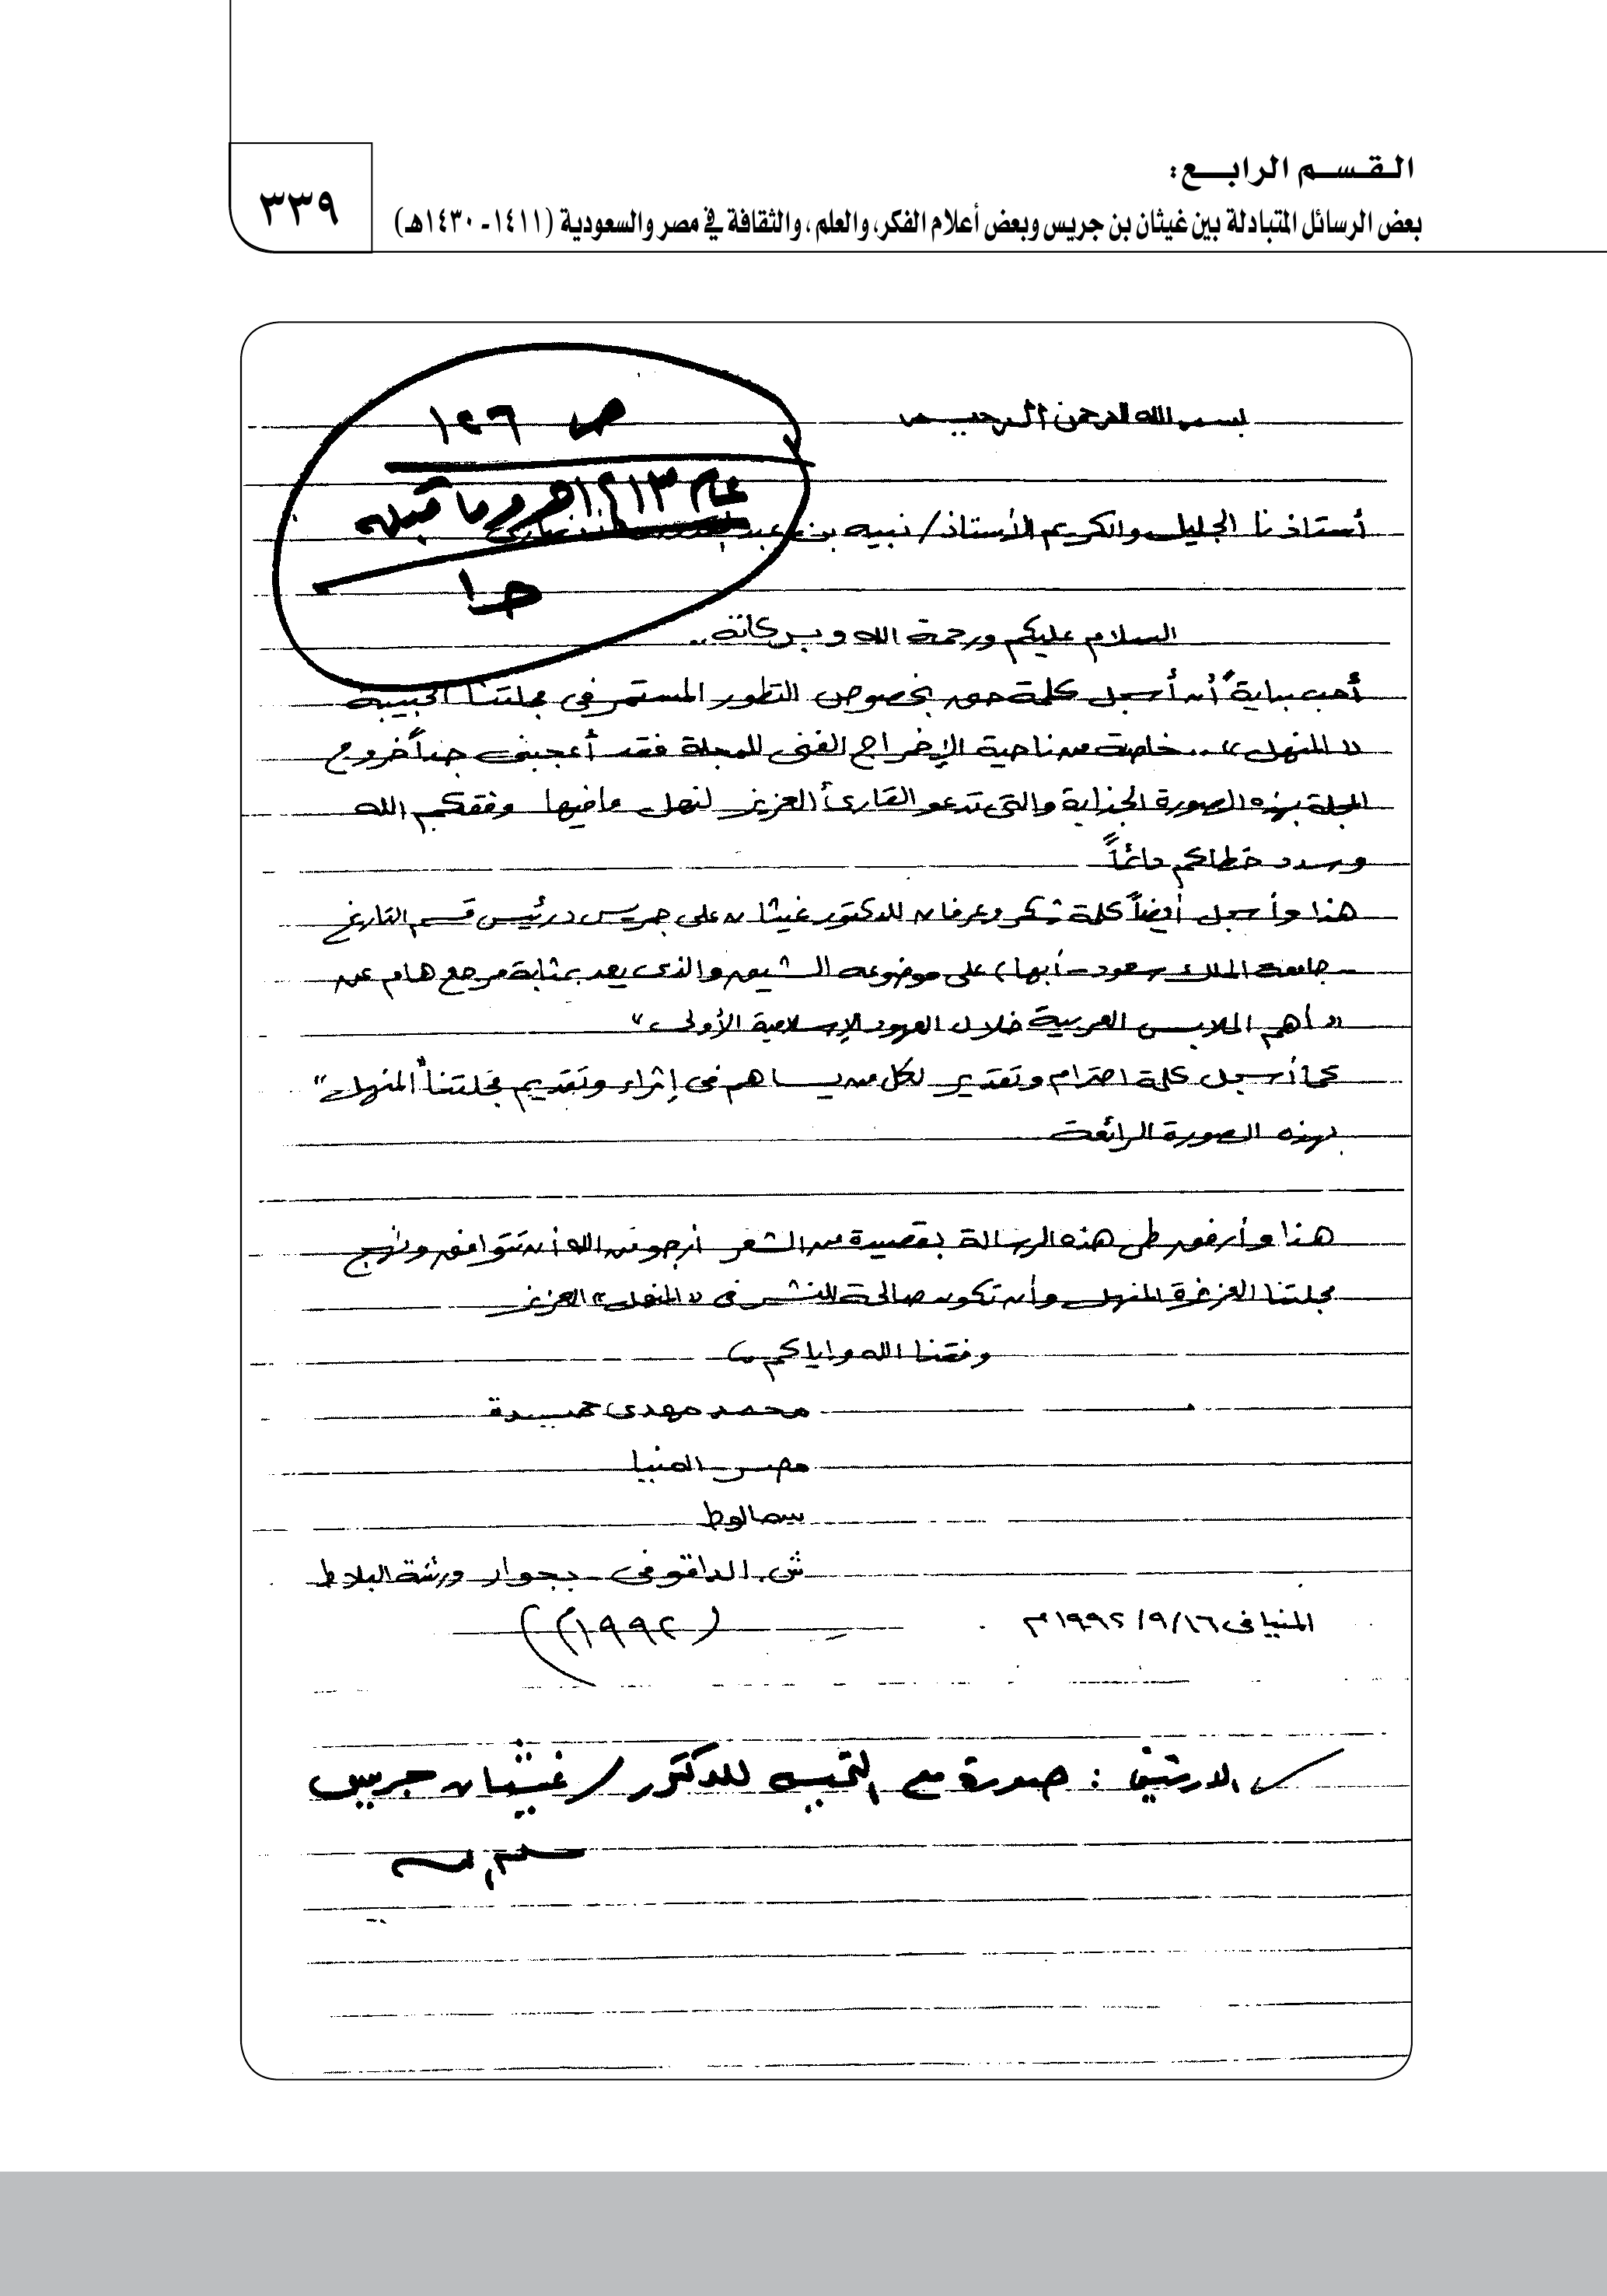 القسم الرابع:
بعض الرسائل المتبادلة بين غيثان بن جريس وبعض أعلام الفكر، والعلم، والثقافة في مصر والسعودية (١٤١١- ١٤٣٠هـ)
٣٣٩
ص ١٤٦
عام ١٤١٣هـ وما قبله
حـ١
بسم الله الرحمن الرحيم
أستاذنا الجليل والكريم الأستاذ/ نبيه بن عبد
السلام عليكم ورحمة الله وبركاته..
أحب بداية أن أسجل كلمة حق بخصوص التطور المستمر في مجلتنا الحبيبة
« المنهل » .. خاصة من ناحية الإخراج الفنى للمجلة فقد أعجبنى جداً خروج
المجلة بهذه الصورة الجذابة والتى تدعو القارئ العزيز لنهل مافيها وفقكم الله
وسدد خطاكم دائماً
هذا وأسجل أيضاً كلمة شكر وعرفان للدكتور غيثان على جريس «رئيس قسم التاريخ
- جامعة الملك سعود - أبها) على موضوعه الشيق والذى يعد بمثابة مرجع هام عن
« أهم الملابس العربية خلال العهود الإسلامية الأولى »
كما أسجل كلمة احترام وتقدير لكل من يساهم فى إثراء وتقديم مجلتنا "المنهل"
بهذه الصورة الرائعة
هذا وأرفق طى هذه الرسالة بقصيدة من الشعر أرجو من الله أن تتوافق ونهج
مجلتنا العزيزة المنهل وأن تكون صالحة للنشر فى « المنهل » العزيز
وفقنا الله وإياكم
محمد مهدى حميدة
مصر المنيا
سمالوط
ش. الداقوفى - بجوار ورشة البلاط
المنيا فى ١٦/ ٩/ ١٩٩٢م
(١٩٩٢م)
الارشيف : صورة مع التحية للدكتور / غيثان جريس